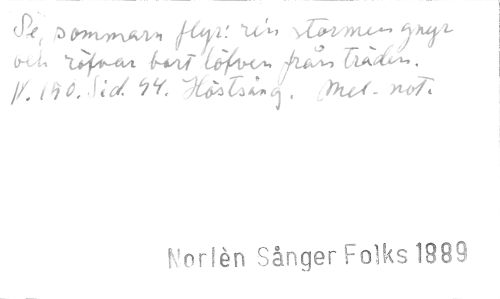 Se, sommarn flyr: re'n stormen gnyr
och röfvar bort löfven från träden.
N. 190. Sid. 94. Höstsång. Mel. not.
Norlèn Sånger Folks 1889